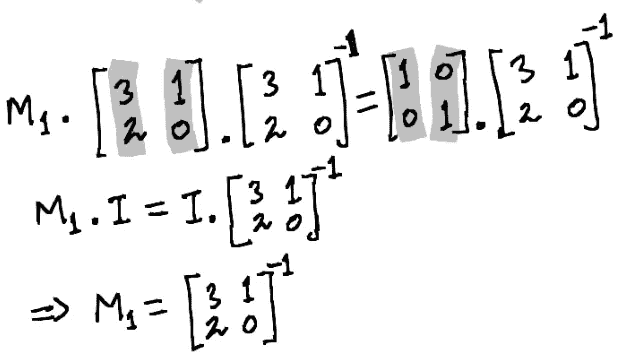 M₁ · [3 1; 2 0] · [3 1; 2 0]⁻¹ = [1 0; 0 1] · [3 1; 2 0]⁻¹
M₁ · I = I · [3 1; 2 0]⁻¹
⇒ M₁ = [3 1; 2 0]⁻¹